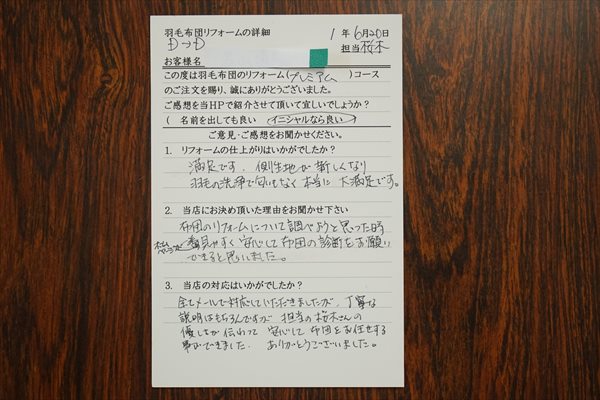 羽毛布団リフォームの詳細
1 年 6月20日
D→D
担当 桜木
お客様名
この度は羽毛布団のリフォーム(プレミアム)コース
のご注文を賜り、誠にありがとうございました。
ご感想を当HPで紹介させて頂いて宜しいでしょうか?
( 名前を出しても良い イニシャルなら良い )
ご意見・ご感想をお聞かせください。
1. リフォームの仕上がりはいかがでしたか?
満足です。側生地が新しくなり
羽毛の洗浄で匂いもなく本当に大満足です。
2. 当店にお決め頂いた理由をお聞かせ下さい
布団のリフォームについて調べようと思った時
見やすく安心して布団の診断をお願い
できると思いました。
3. 当店の対応はいかがでしたか?
全てメールで対応していただきましたが、丁寧な
説明はもちろんですが 担当の桜木さんの
優しさが伝わって 安心して布団をお任せする
事ができました。ありがとうございました。